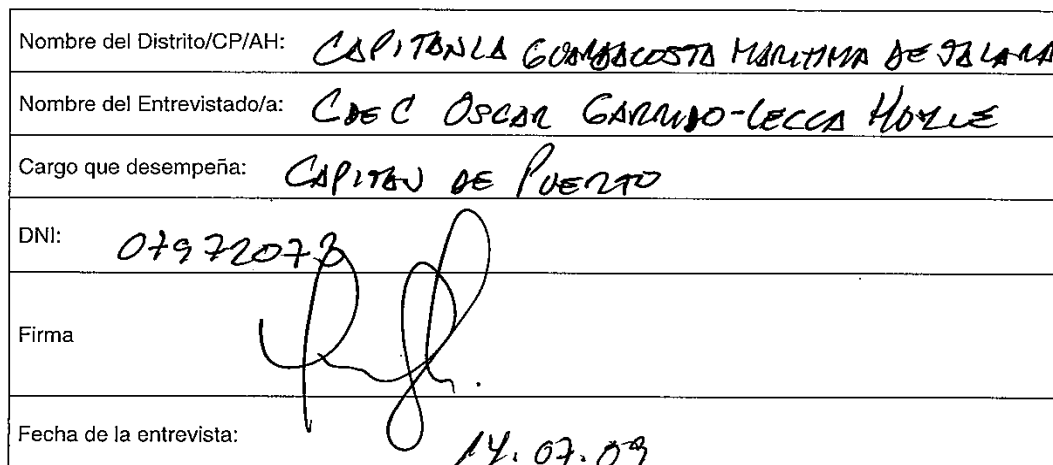 Nombre del Distrito/CP/AH: CAPITANIA GUARDACOSTA MARITIMA DE TALARA
Nombre del Entrevistado/a: C DE C OSCAR GARRIDO-LECCA HOYLE
Cargo que desempeña: CAPITAN DE PUERTO
DNI: 07972073
Firma
Fecha de la entrevista: 14.07.09